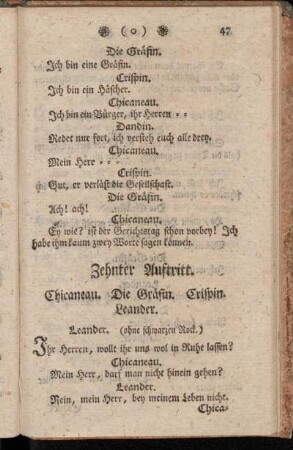 (o) 47
Die Gräfin.
Ich bin eine Gräfin.
Crispin.
Ich bin ein Häscher.
Chicaneau.
Ich bin ein Bürger, ihr Herren = =
Dandin.
Redet nur fort, ich versteh euch alle drey.
Chicaneau.
Mein Herr = = =
Crispin.
Gut, er verläßt die Gesellschaft.
Die Gräfin.
Ach! ach!
Chicaneau.
Ey wie? ist der Gerichtstag schon vorbey! Ich
habe ihm kaum zwey Worte sagen können.
Zehnter Auftritt.
Chicaneau. Die Gräfin. Crispin.
Leander.
Leander. (ohne schwarzen Rock.)
Ihr Herren, wollt ihr uns wol in Ruhe lassen?
Chicaneau.
Mein Herr, darf man nicht hinein gehen?
Leander.
Nein, mein Herr, bey meinem Leben nicht.
Chica-